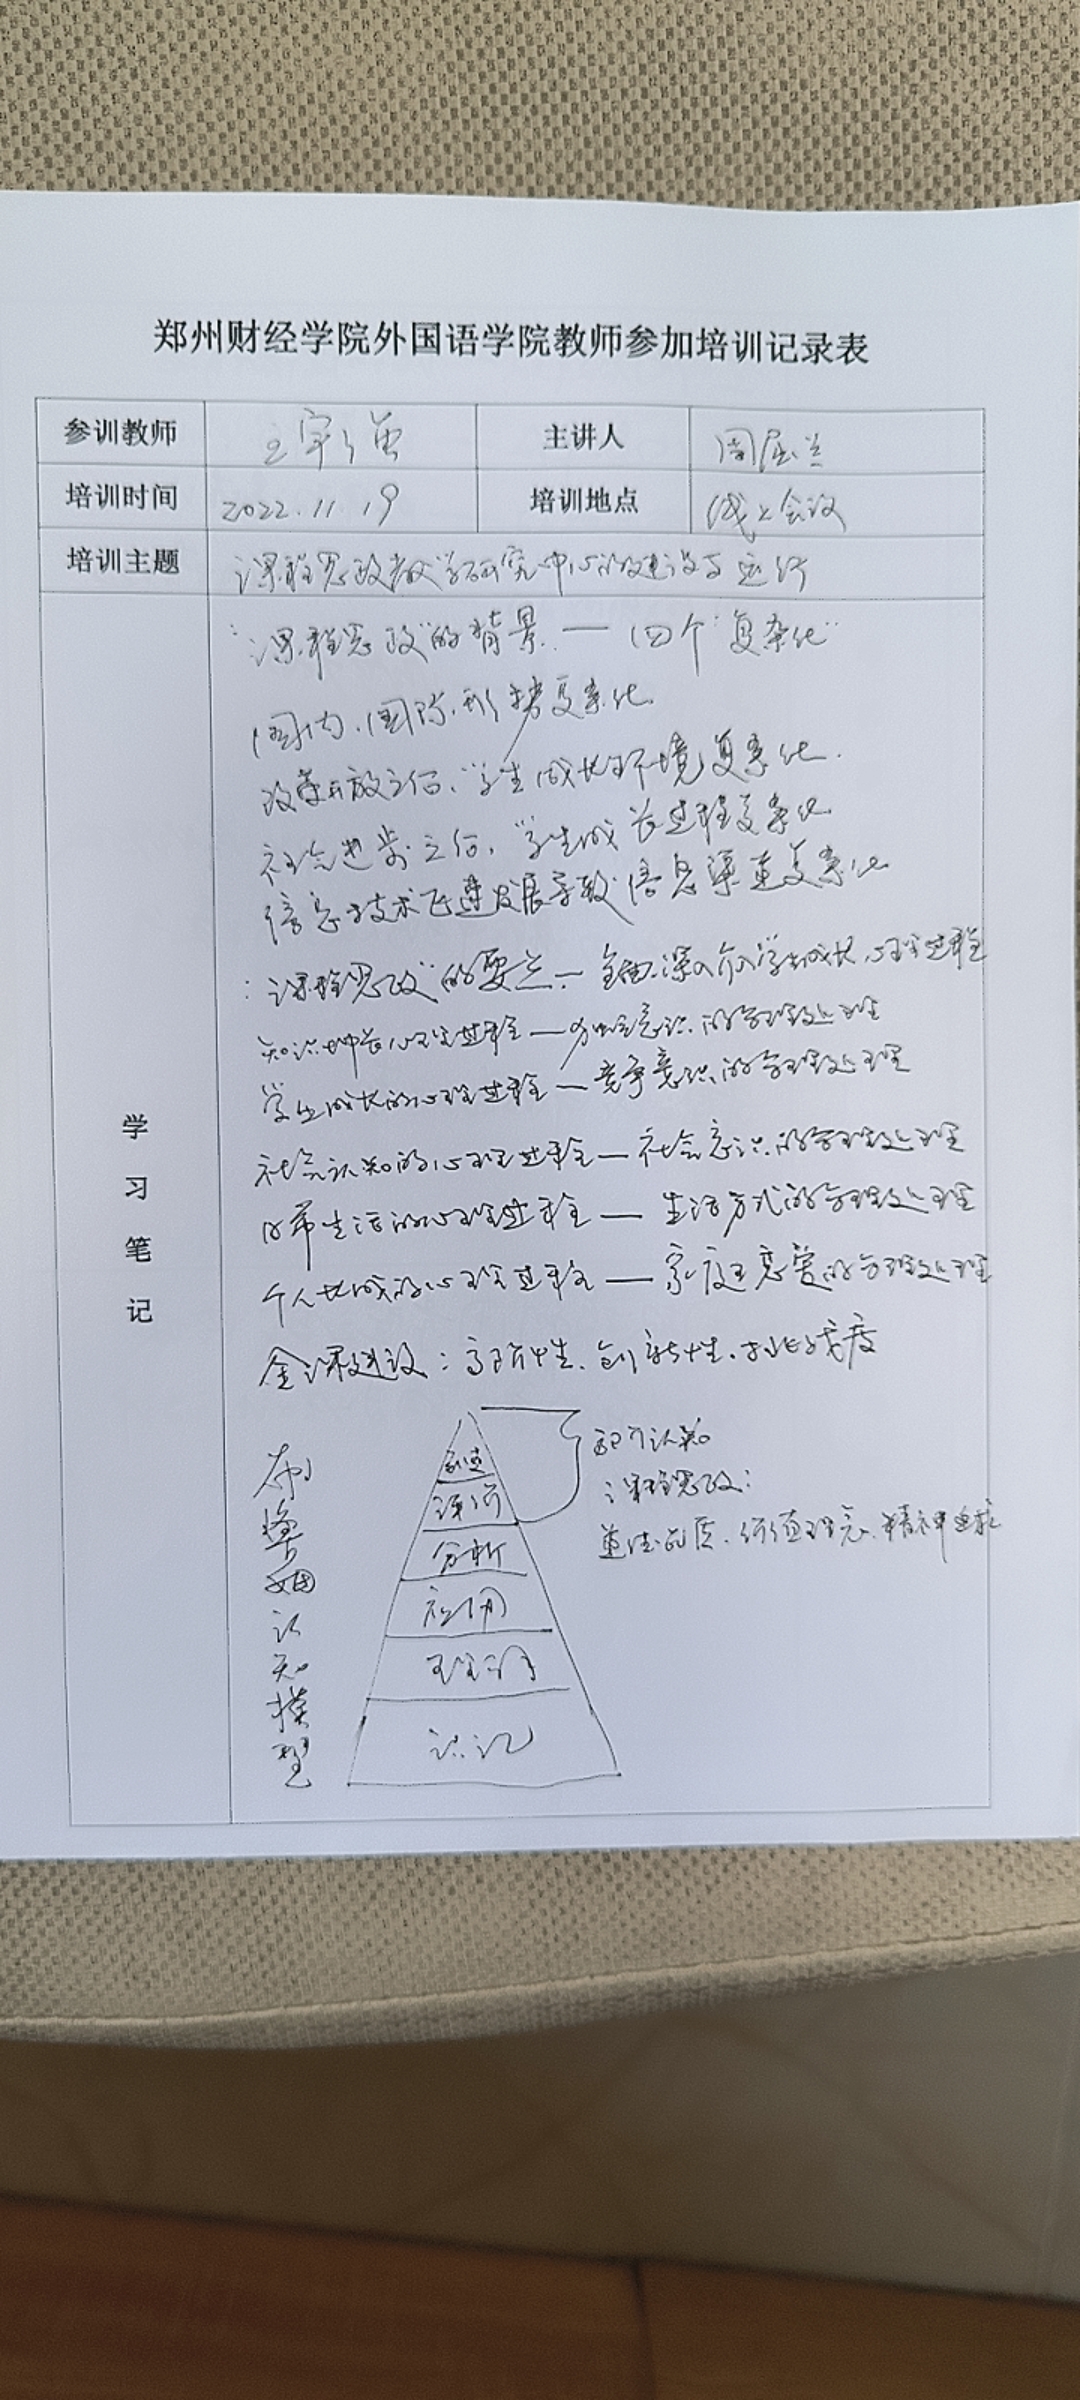 郑州财经学院外国语学院教师参加培训记录表
参训教师 王宇 主讲人 周
培训时间 2022.11.19 培训地点 线上会议
培训主题 课程思政教学研究中心的建设与运行
学习笔记
"课程思政"的背景 — 四个"复杂化"
国内、国际形势复杂化
改革开放之后、学生成长环境复杂化.
社会进步之后, 学生成长过程复杂化
信息技术飞速发展导致信息渠道复杂化
"课程思政"的要点 — 全面深入介入学生成长心理过程
知识增长心理过程 — 意识的管理处理
学生成长的心理过程 — 竞争意识的管理处理
社会认知的心理过程 — 社会意识的管理处理
日常生活的心理过程 — 生活方式的管理处理
个人长成的心理过程 — 家庭恋爱的管理处理
金课建设：高阶性、创新性、挑战度
布鲁姆认知模型
创造
评价
分析
应用
理解
识记
高阶认知
课程思政：
道德品质、价值理念、精神追求